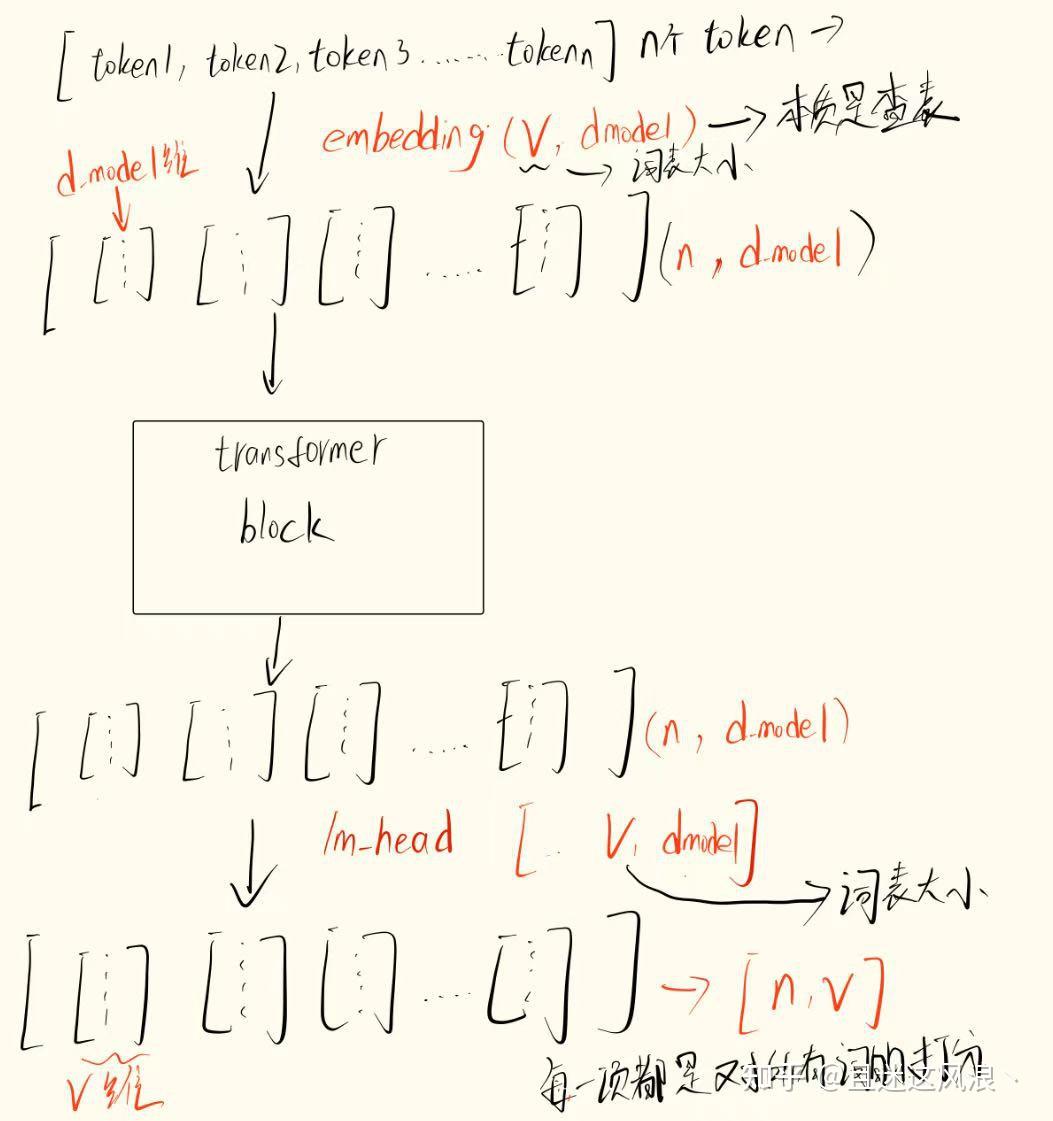 [ token1, token2, token3 ....... tokenn ] n个 token →
embedding (V, dmodel) → 本质是查表
→ 词表大小
d_model维
(n, d_model)
transformer
block
(n, d_model)
lm_head [ .. V, dmodel]
→ 词表大小
→ [n, V]
V维
每一项都是对所有词的打分
知乎 @自迷这风浪